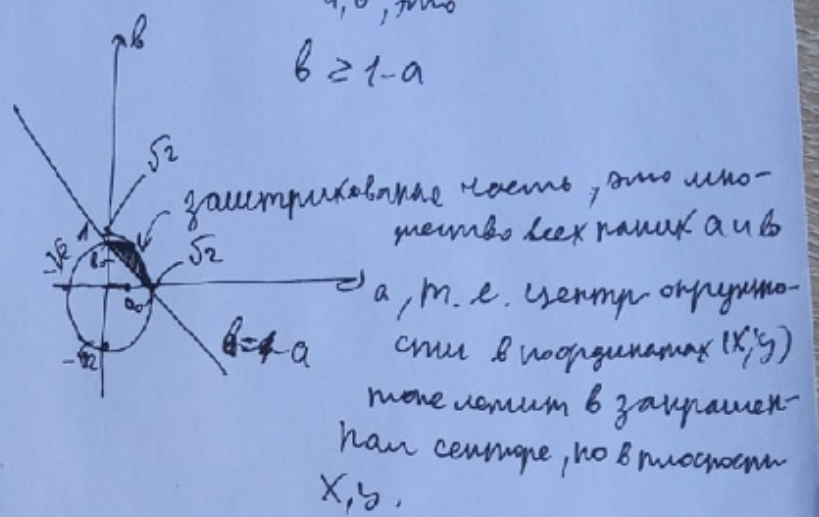 a, b, это
b ≥ 1-a
b
√2
заштрихованная часть, это мно-
жество всех таких a и b
1
√2
-√2
a₀
a, т. е. центр окружно-
b=1-a
сти в координатах (x;y)
-√2
тоже лежит в закрашен-
ном секторе, но в плоскости
x,y.